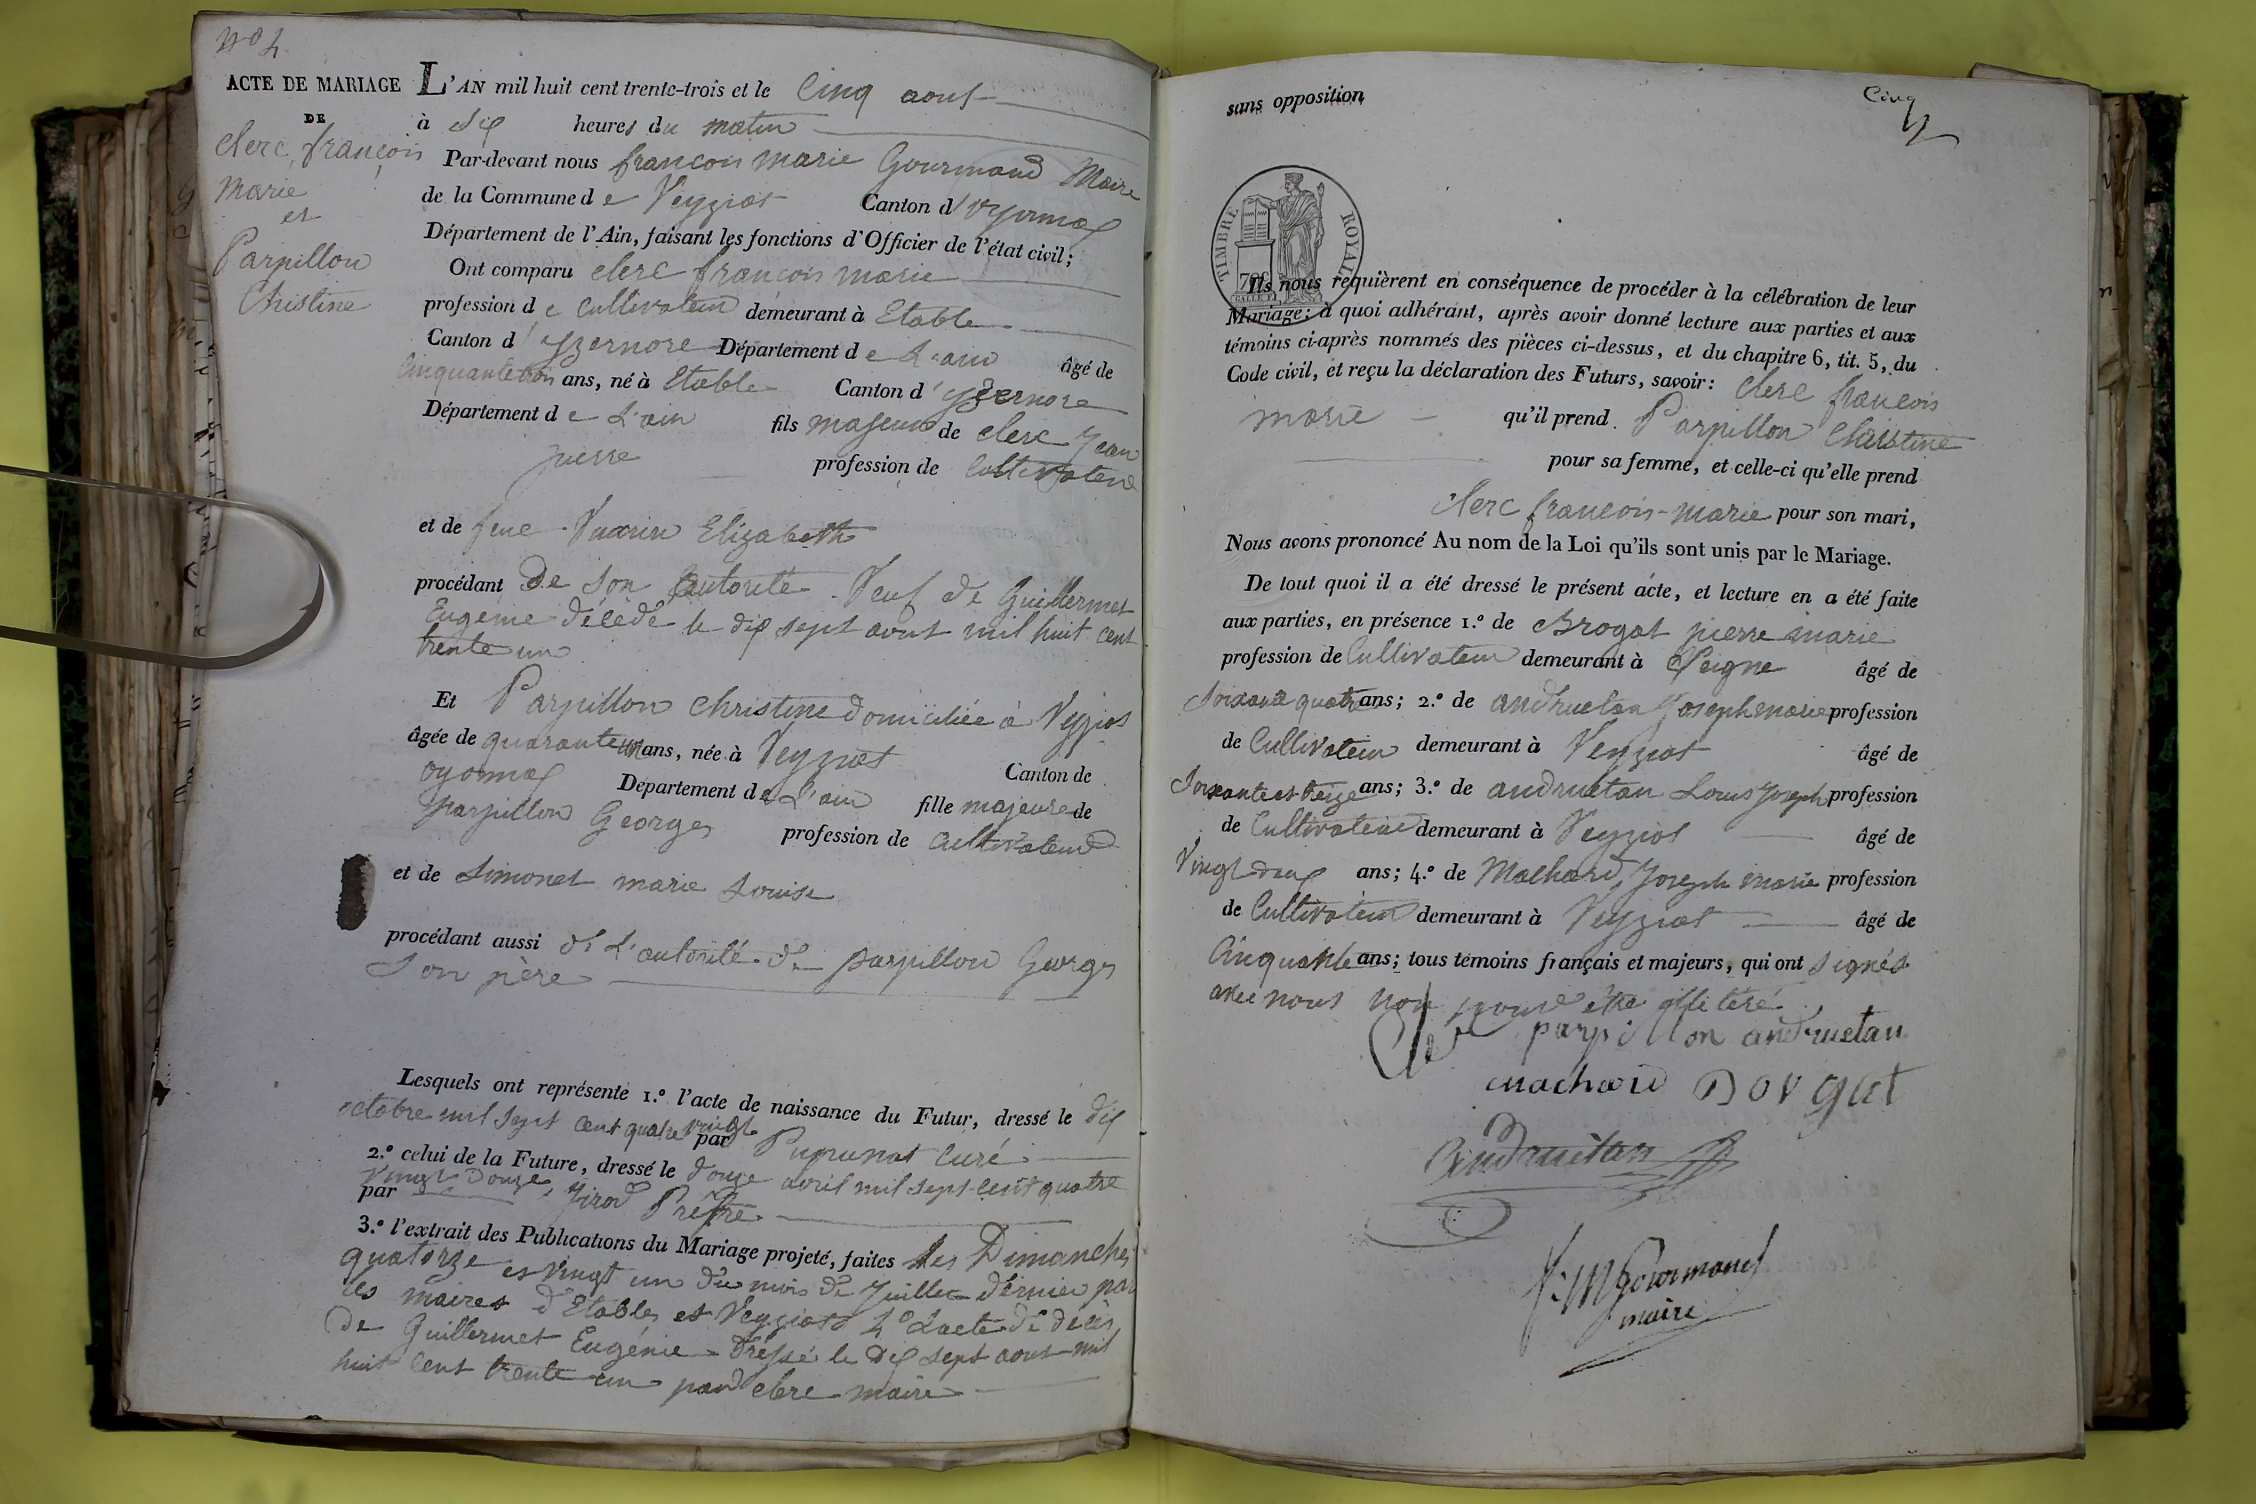 N° 4
ACTE DE MARIAGE
DE
Clerc françois
marie
et
Parpillon
Christine
L'AN mil huit cent trente-trois et le Cinq aout
à dix heures du matin
Par-devant nous françois marie Gourmand Maire
de la Commune de Veyziat Canton d'oyonnax
Département de l'Ain, faisant les fonctions d'Officier de l'état civil;
Ont comparu clerc françois marie
profession de Cultivateur demeurant à Etable
Canton d'yzernore Département de L'ain âgé de
Cinquante trois ans, né à Etable Canton d'yzernore
Département de L'ain fils majeur de clerc Jean
pierre profession de Cultivateur
et de feue Vuarin Elizabeth
procédant De son autorité Veuf de Guillermet
Eugénie décédé le dix sept aout mil huit cent
trente un
Et Parpillon Christine domiciliée à Veyziat
âgée de quarante un ans, née à Veyziat Canton de
oyonnax Département de L'ain fille majeure de
parpillon Georges profession de Cultivateur
et de Simonet marie Louise
procédant aussi de L'autorité de parpillon Georges
son père
Lesquels ont représenté 1.° l'acte de naissance du Futur, dressé le dix
octobre mil sept cent quatre vingt par curé
2.° celui de la Future, dressé le douze avril mil sept cent quatre
vingt douze par Jirod Prêtre
3.° l'extrait des Publications du Mariage projeté, faites les Dimanches
quatorze et vingt un du mois de Juillet dernier par
les maires d'Etables et Veyziat 4° L'acte de décès
de Guillermet Eugénie Dressé le dix sept aout mil
huit cent trente un par clerc maire
sans opposition
Cinq
TIMBRE ROYAL
Ils nous requièrent en conséquence de procéder à la célébration de leur
Mariage; à quoi adhérant, après avoir donné lecture aux parties et aux
témoins ci-après nommés des pièces ci-dessus, et du chapitre 6, tit. 5, du
Code civil, et reçu la déclaration des Futurs, savoir: Clerc francois
marie qu'il prend Parpillon Christine
pour sa femme, et celle-ci qu'elle prend
Clerc francois-marie pour son mari,
Nous avons prononcé Au nom de la Loi qu'ils sont unis par le Mariage.
De tout quoi il a été dressé le présent acte, et lecture en a été faite
aux parties, en présence 1.° de pierre marie
profession de Cultivateur demeurant à âgé de
Soixante quatre ans; 2.° de andruetan Joseph marie profession
de Cultivateur demeurant à Veyziat âgé de
Soixante et treize ans; 3.° de andruetan Louis Joseph profession
de Cultivateur demeurant à Veyziat âgé de
Vingt deux ans; 4.° de Machard Joseph marie profession
de Cultivateur demeurant à Veyziat âgé de
Cinquante ans; tous témoins français et majeurs, qui ont signés
avec nous non pour être illiteré
parpillon andruetan
machard
andruétan
f: M Gourmand
maire